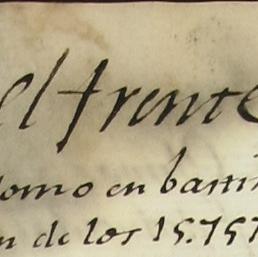 el frente
como en basti
n de los 15.757